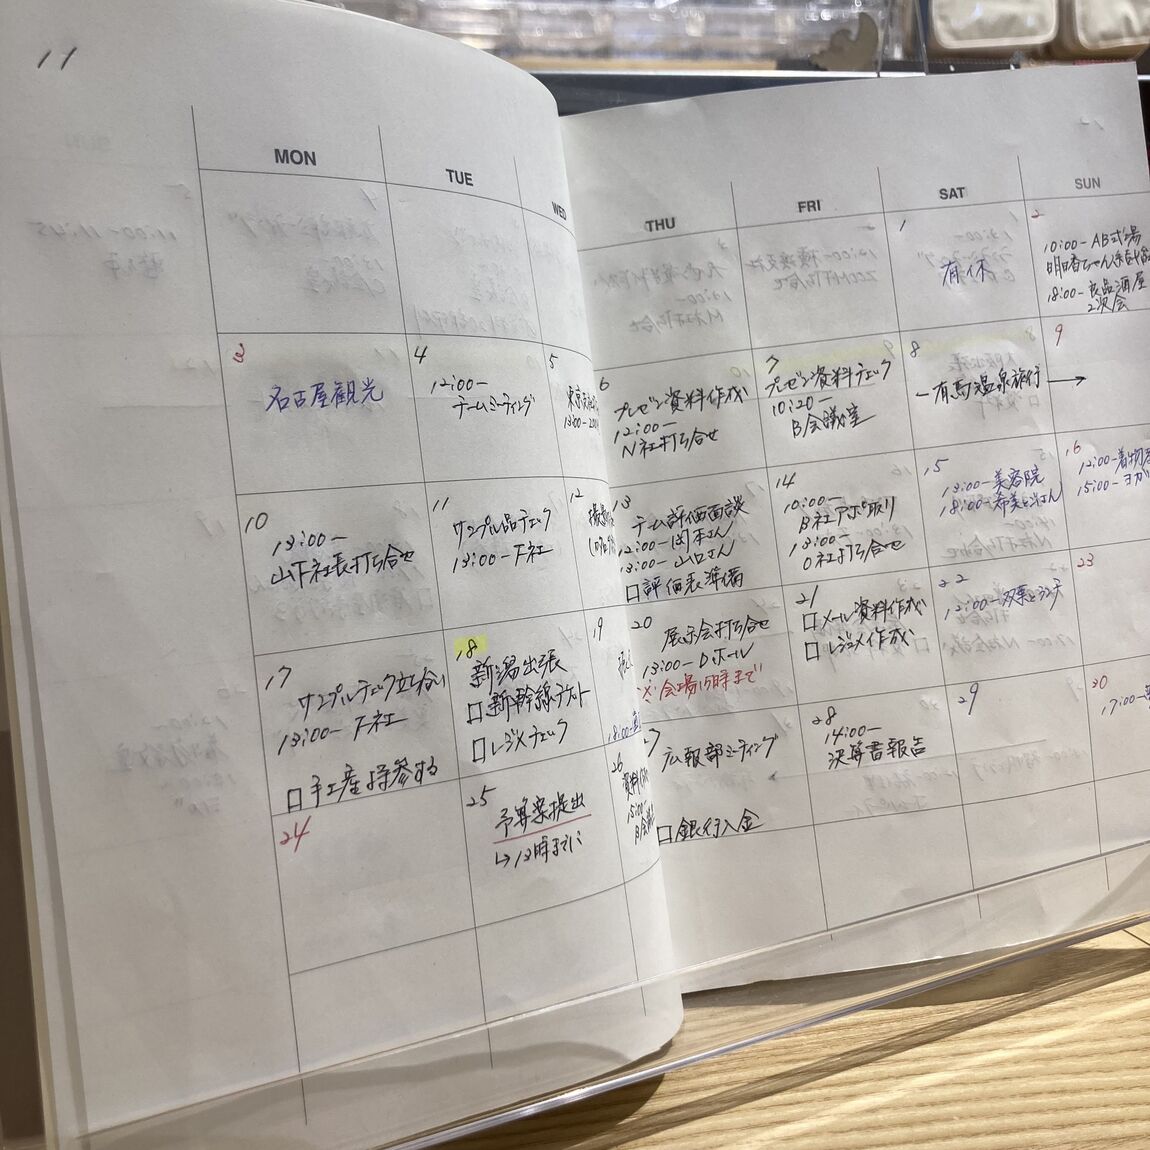 11
MON
TUE
WED
THU
FRI
SAT
SUN
1
有休
2
10:00-AB式場
18:00-良品酒屋
2次会
3
名古屋観光
4
12:00-
チームミーティング
5
6
プレゼン資料作成
12:00-
N社打ち合せ
7
プレゼン資料チェック
10:20-
B会議室
8
-有馬温泉旅行→
9
10
13:00-
山下社長打ち合せ
11
サンプル品チェック
13:00-F社
12
13
チーム評価面談
12:00-岡本さん
13:00-山口さん
□評価表準備
14
10:00-
B社アポ取り
13:00-
O社打ち合せ
15
13:00-美容院
16
12:00-着物
15:00-ヨガ
17
サンプルチェック立ち合い
13:00-F社
□手土産持参する
18
新潟出張
□新幹線チケット
□レジメチェック
19
20
展示会打ち合せ
13:00-Dホール
※会場15時まで
21
□メール資料作成
□レジメ作成
22
23
24
25
予算案提出
↳13時までに
26
27
広報部ミーティング
□銀行入金
28
14:00-
決算書報告
29
30
17:00-